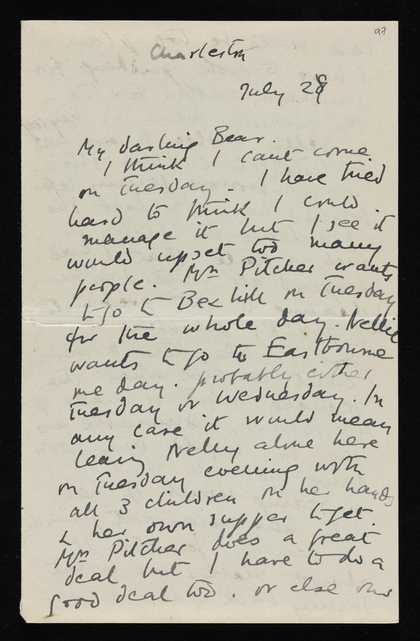 97
Charleston
July 29
My darling Bear.
I think I can't come
on Tuesday. I have tried
hard to think I could
manage it but I see it
would upset too many
people. Mrs Pitcher wants
to go to Bexhill on Tuesday
for the whole day. Nellie
wants to go to Eastbourne
one day. probably either
Tuesday or Wednesday. In
any case it would mean
leaving Nelly alone here
on Tuesday evening with
all 3 children on her hands
& her own supper to get.
Mrs Pitcher does a great
deal but I have to do a
good deal too. or else our